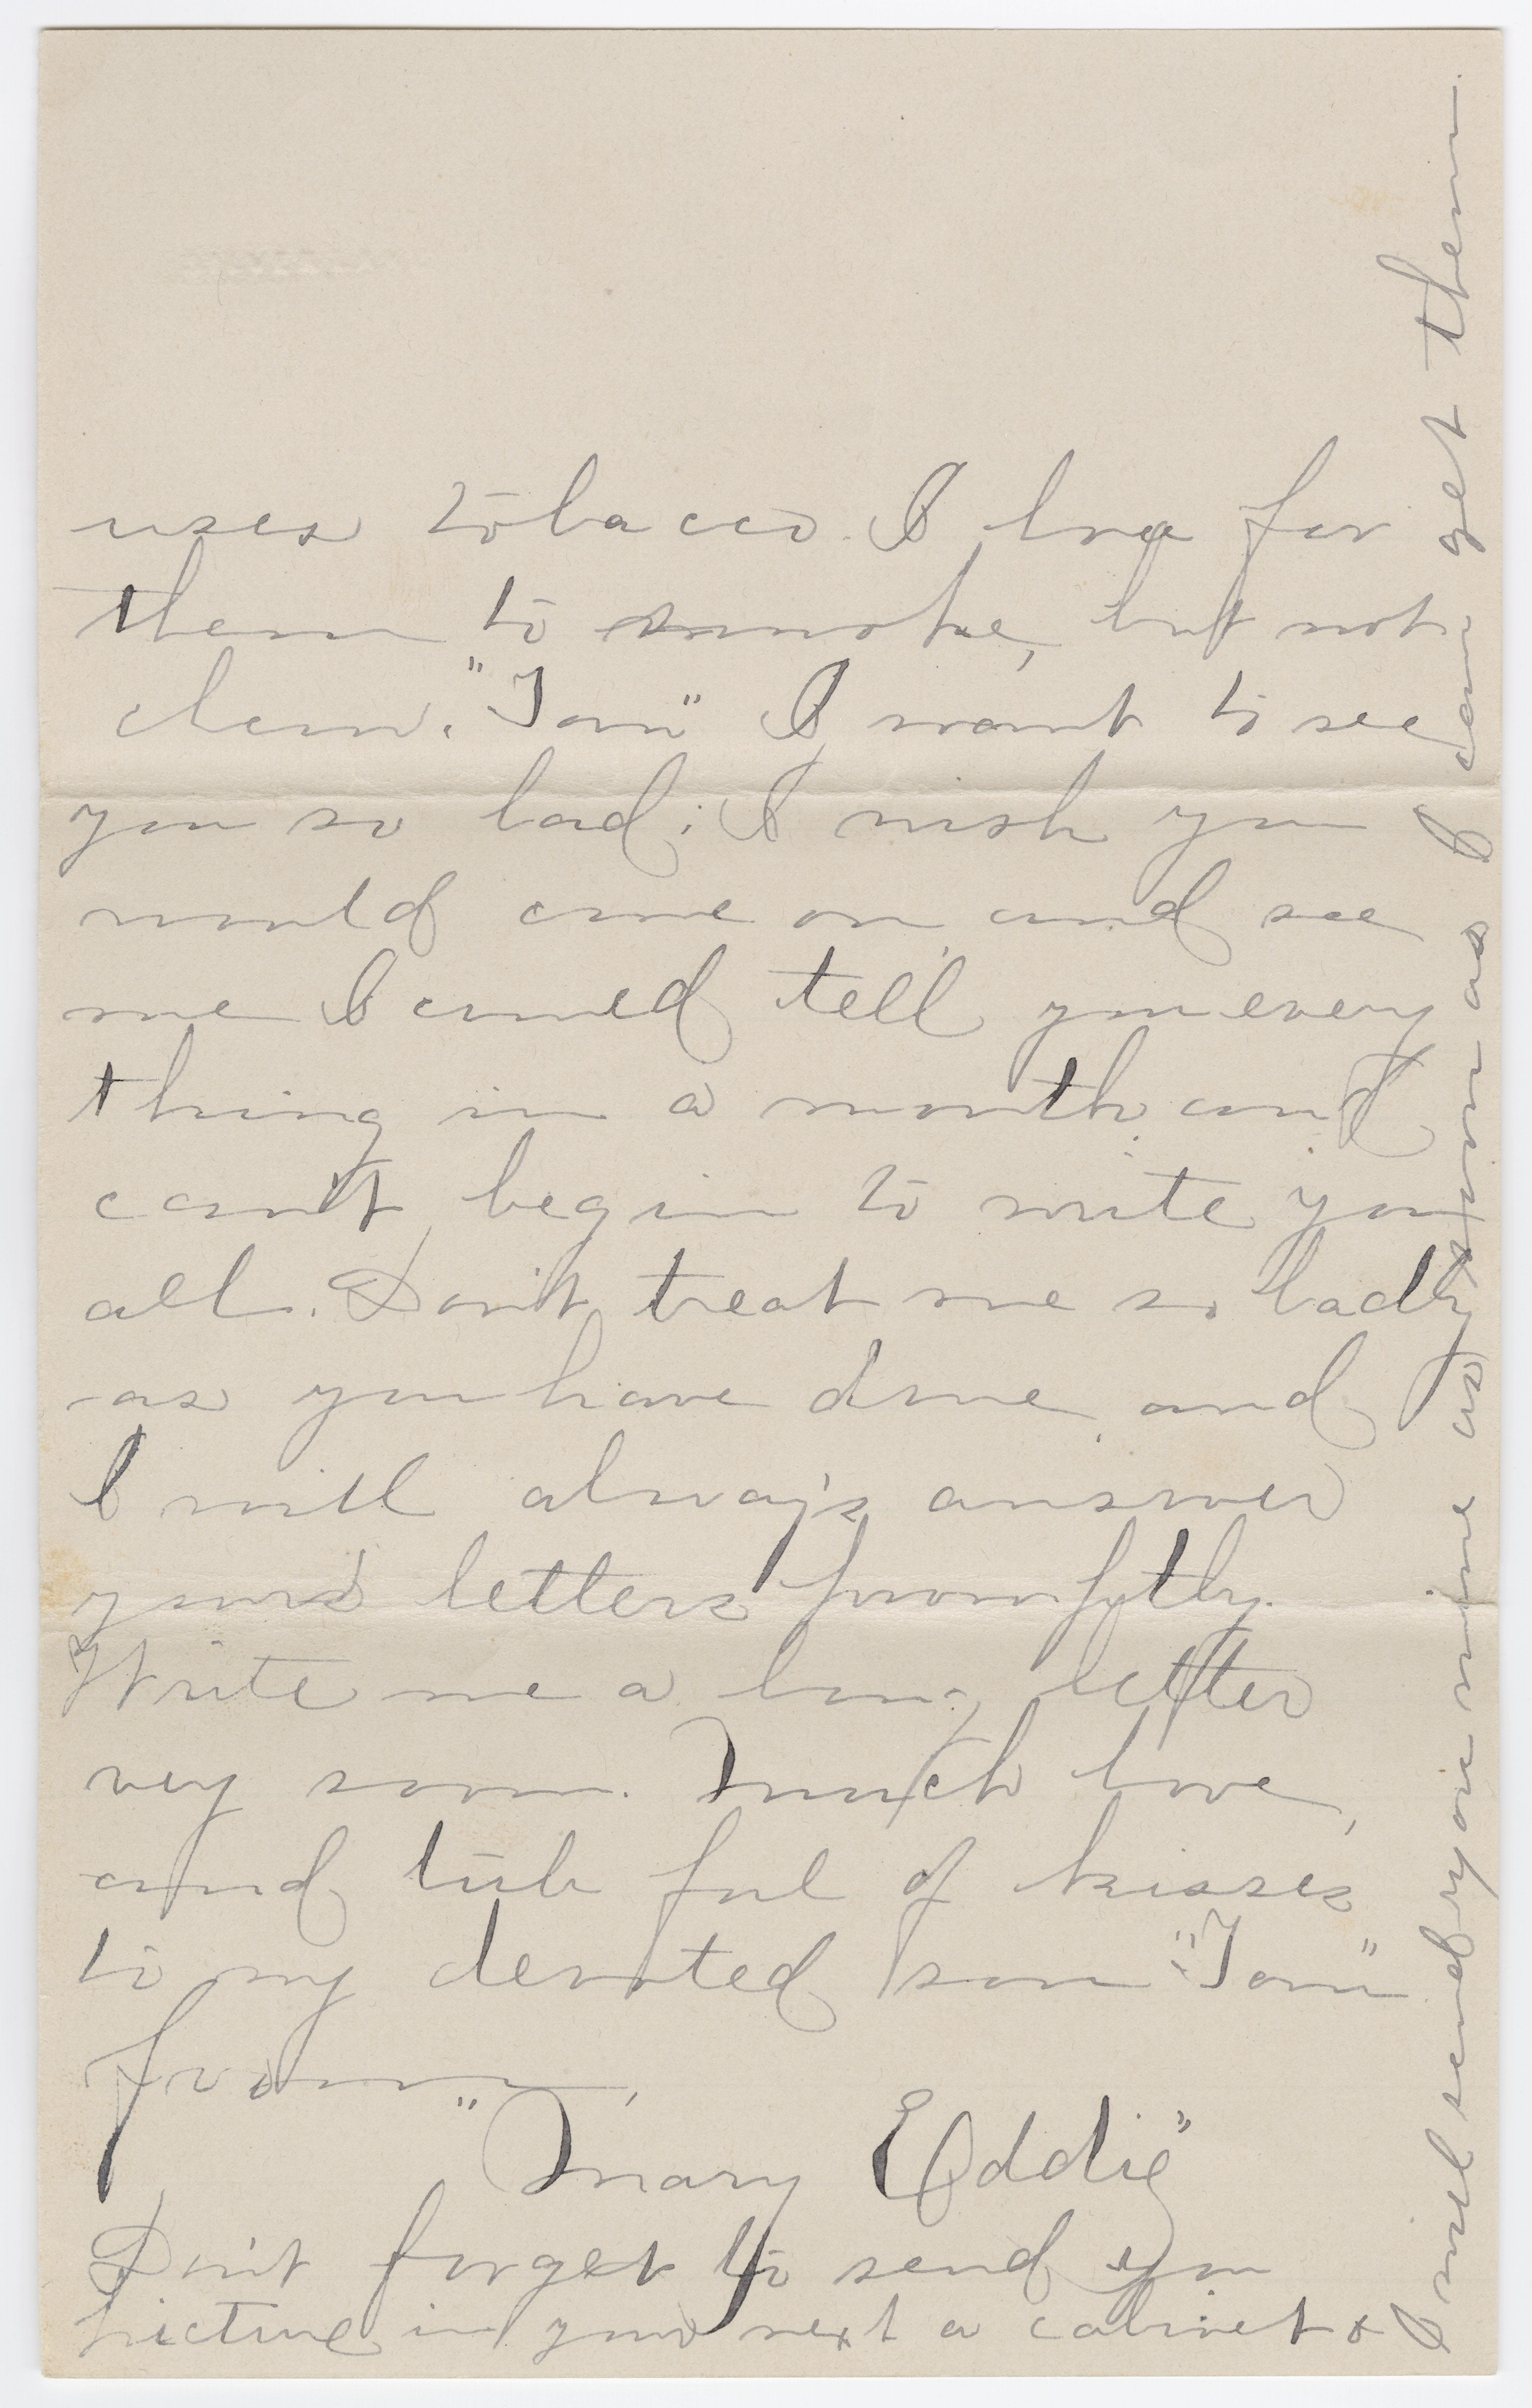 uses tobacco. I love for
them to smoke, but not
chew. "Tom" I want to see
you so bad; I wish you
would come on and see
me I coued tell you every
thing in a month and
can't begin to write you
all. Don't treat me so badly
as you have done, and
I will always answer
your letters promptly.
Write me a long letter
very soon. Much love,
and tub ful of kisses
to my devoted son "Tom"
from,
"Mary Eddie"
Don't forget to send you
picture in your next a cabinet &
I will send you mine as soon as I can get them.